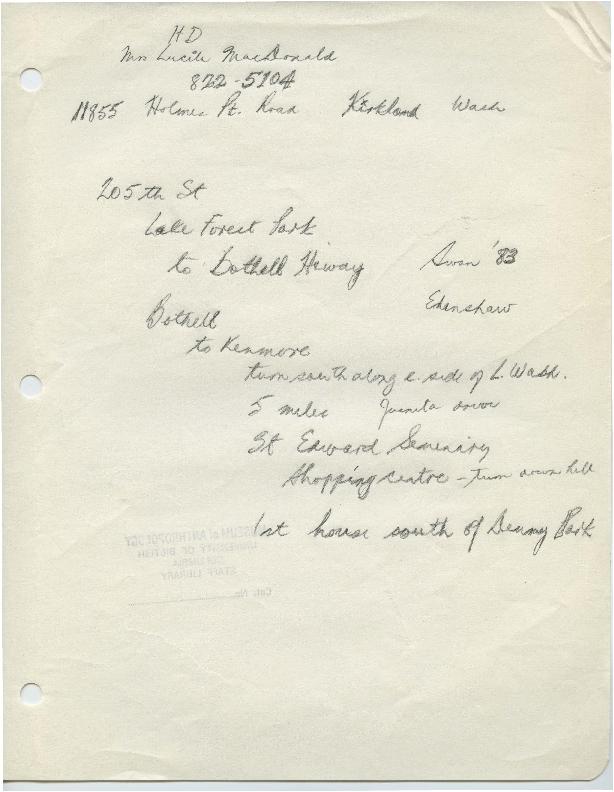 HD
Mrs Lucile MacDonald
822-5104
11855 Holmes Pt. Road Kirkland Wash
205th St
Lake Forest Park
to Bothell Hiway
Swan '83
Edenshaw
Bothell
to Kenmore
turn south along e. side of L. Wash.
5 miles Juanita
St Edward Seminary
Shopping centre - turn down hill
1st house south of Denny Park
MUSEUM of ANTHROPOLOGY
UNIVERSITY OF BRITISH
COLUMBIA
STAFF LIBRARY
Cat. No.